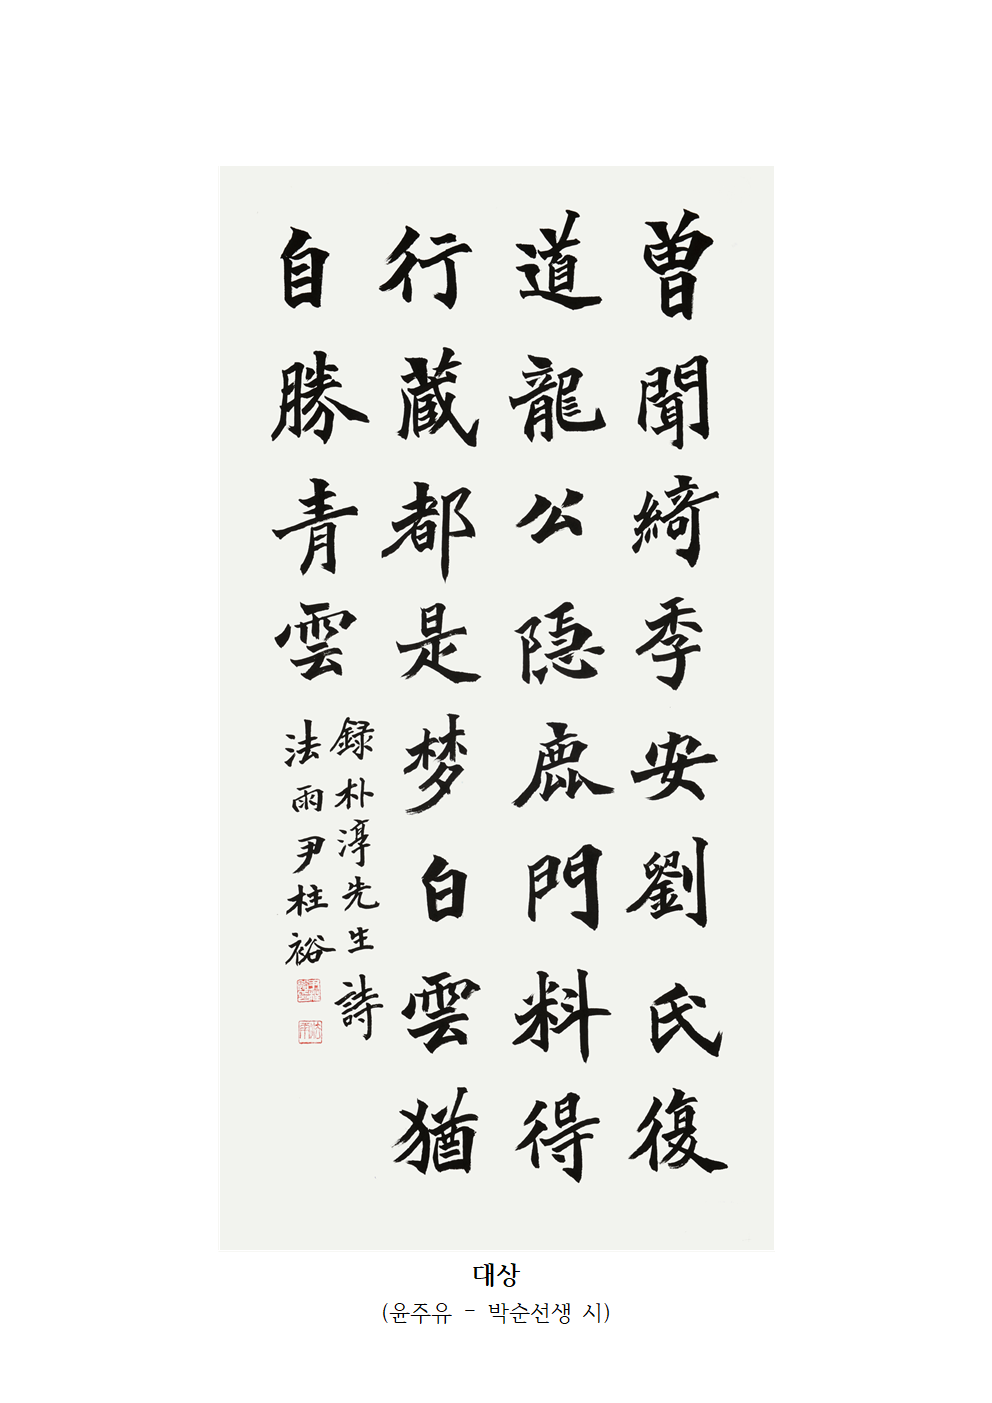 曽聞綺季安劉氏復
道龍公隠鹿門料得
行蔵都是梦白雲猶
自勝青雲
録朴淳先生詩
法雨尹柱裕
대상
(윤주유 - 박순선생 시)